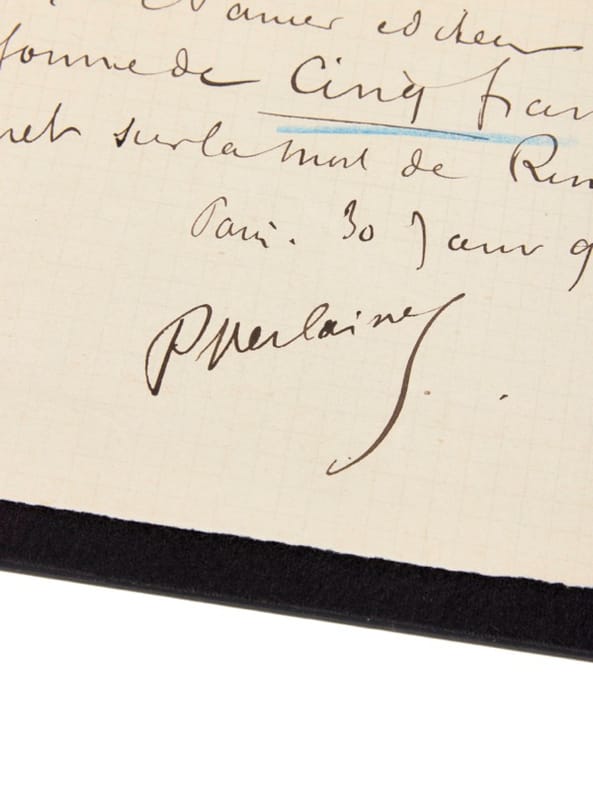 Vanier editeur
somme de Cinq fran
net sur la mort de Rim
Paris. 30 Janv 9
PVerlaine